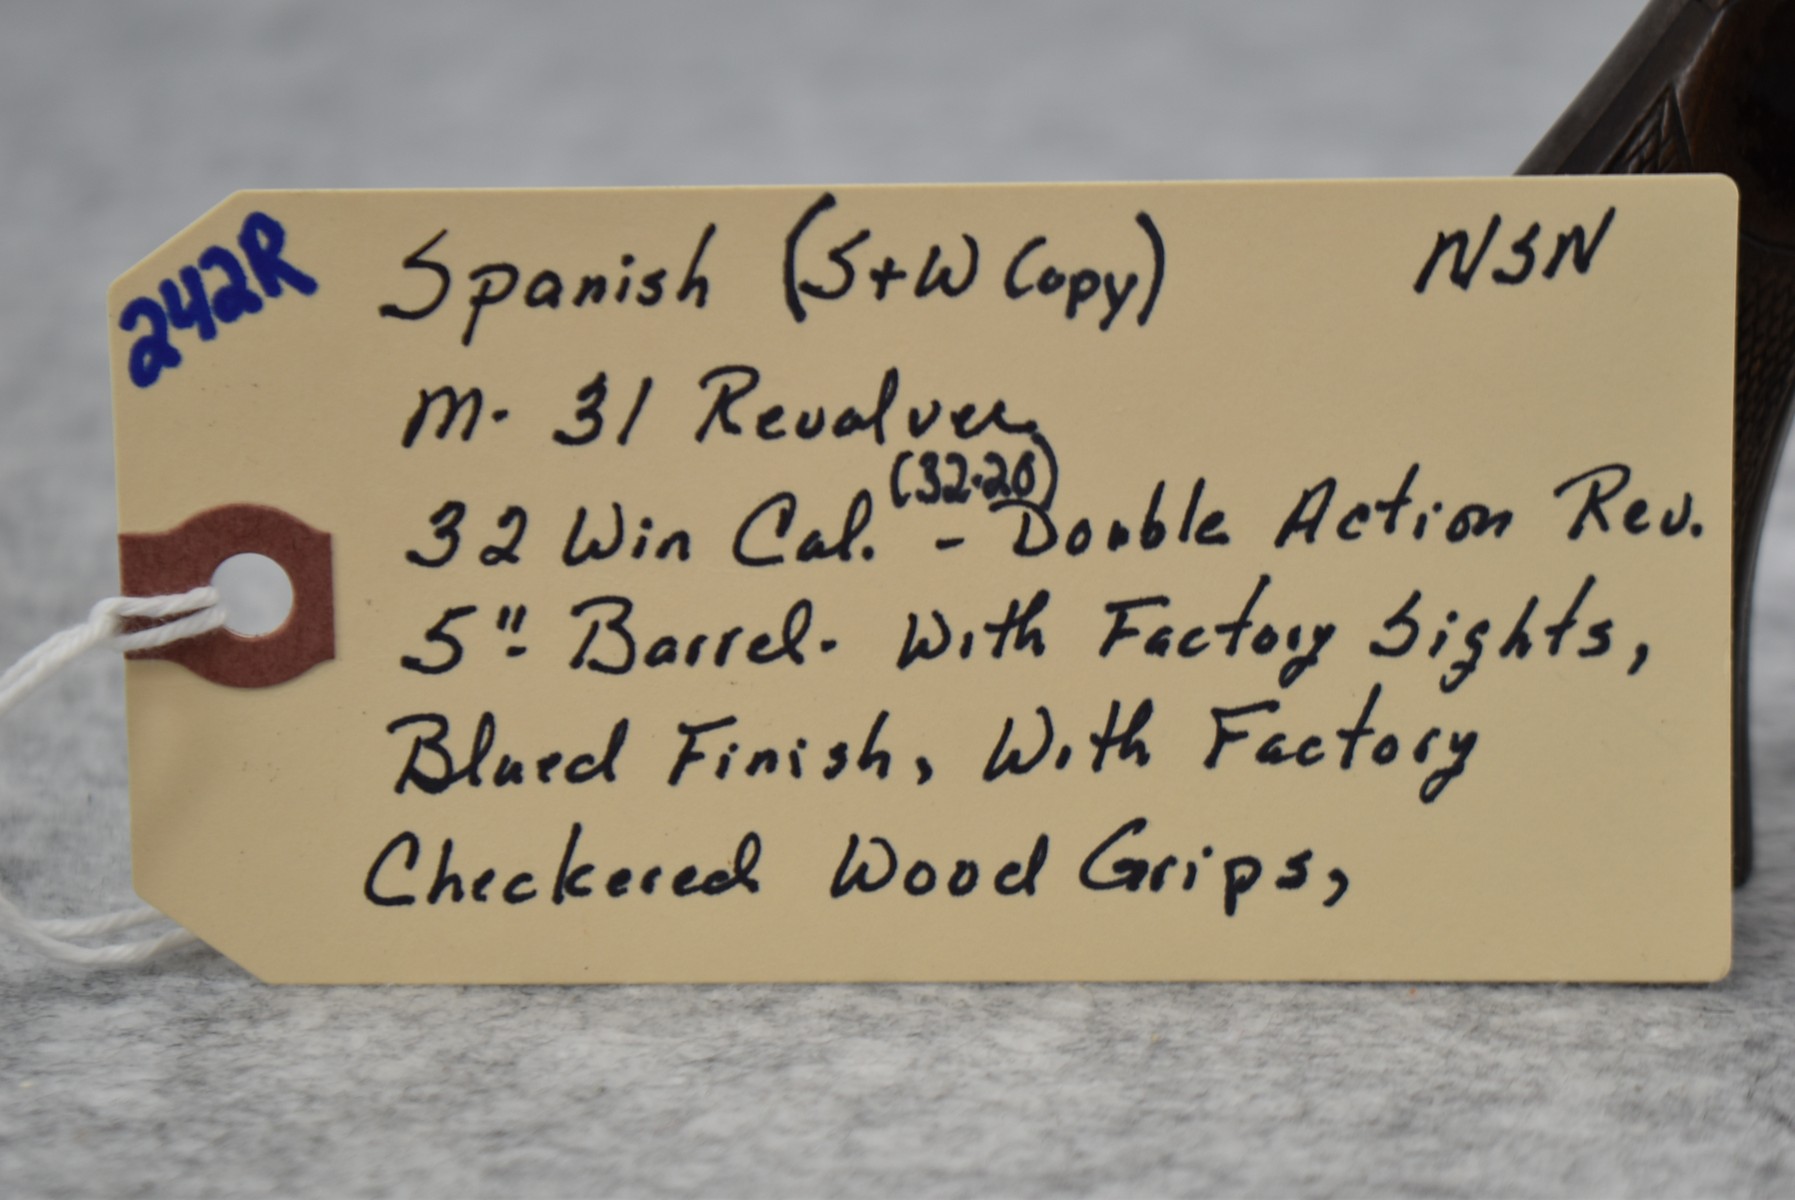 242R
Spanish (S+W Copy) NSN
M- 31 Revalver
(32-20)
32 Win Cal. - Double Action Rev.
5" Barrel- With Factory Sights,
Blued Finish, With Factory
Checkered Wood Grips,